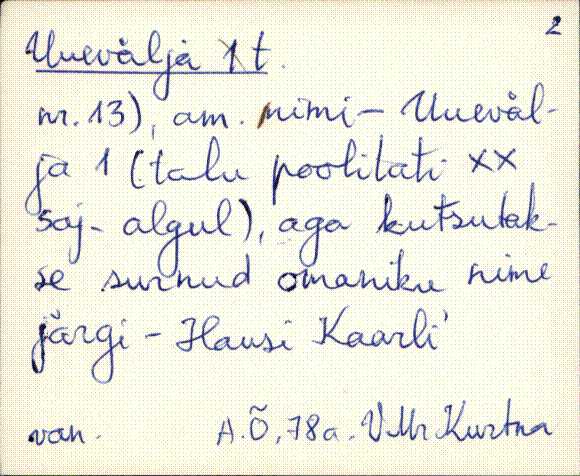 2
Uuevälja 1 t.
nr. 13), am. nimi – Uueväl-
ja 1 (talu poolitati XX
saj. algul), aga kutsutak-
se surnud omaniku nime
järgi – Hansi Kaarli
van. A.Õ, 78a. VMr Kurtna